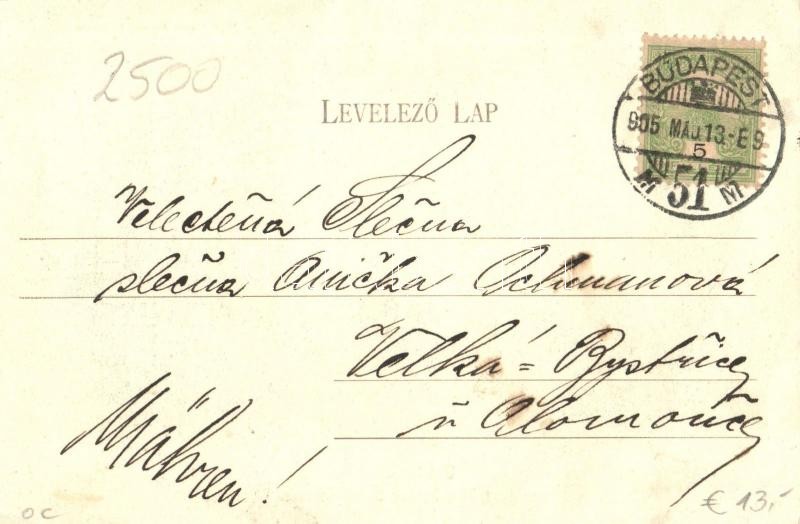 2500
LEVELEZŐ LAP
BUDAPEST
905 MÁJ 13-E9
5
M 51 M
Velectěná Slečna
slečna Anička Ochmanová
Velká=Bystřice
u Olomouce
Mähren!
oc
€ 13,-